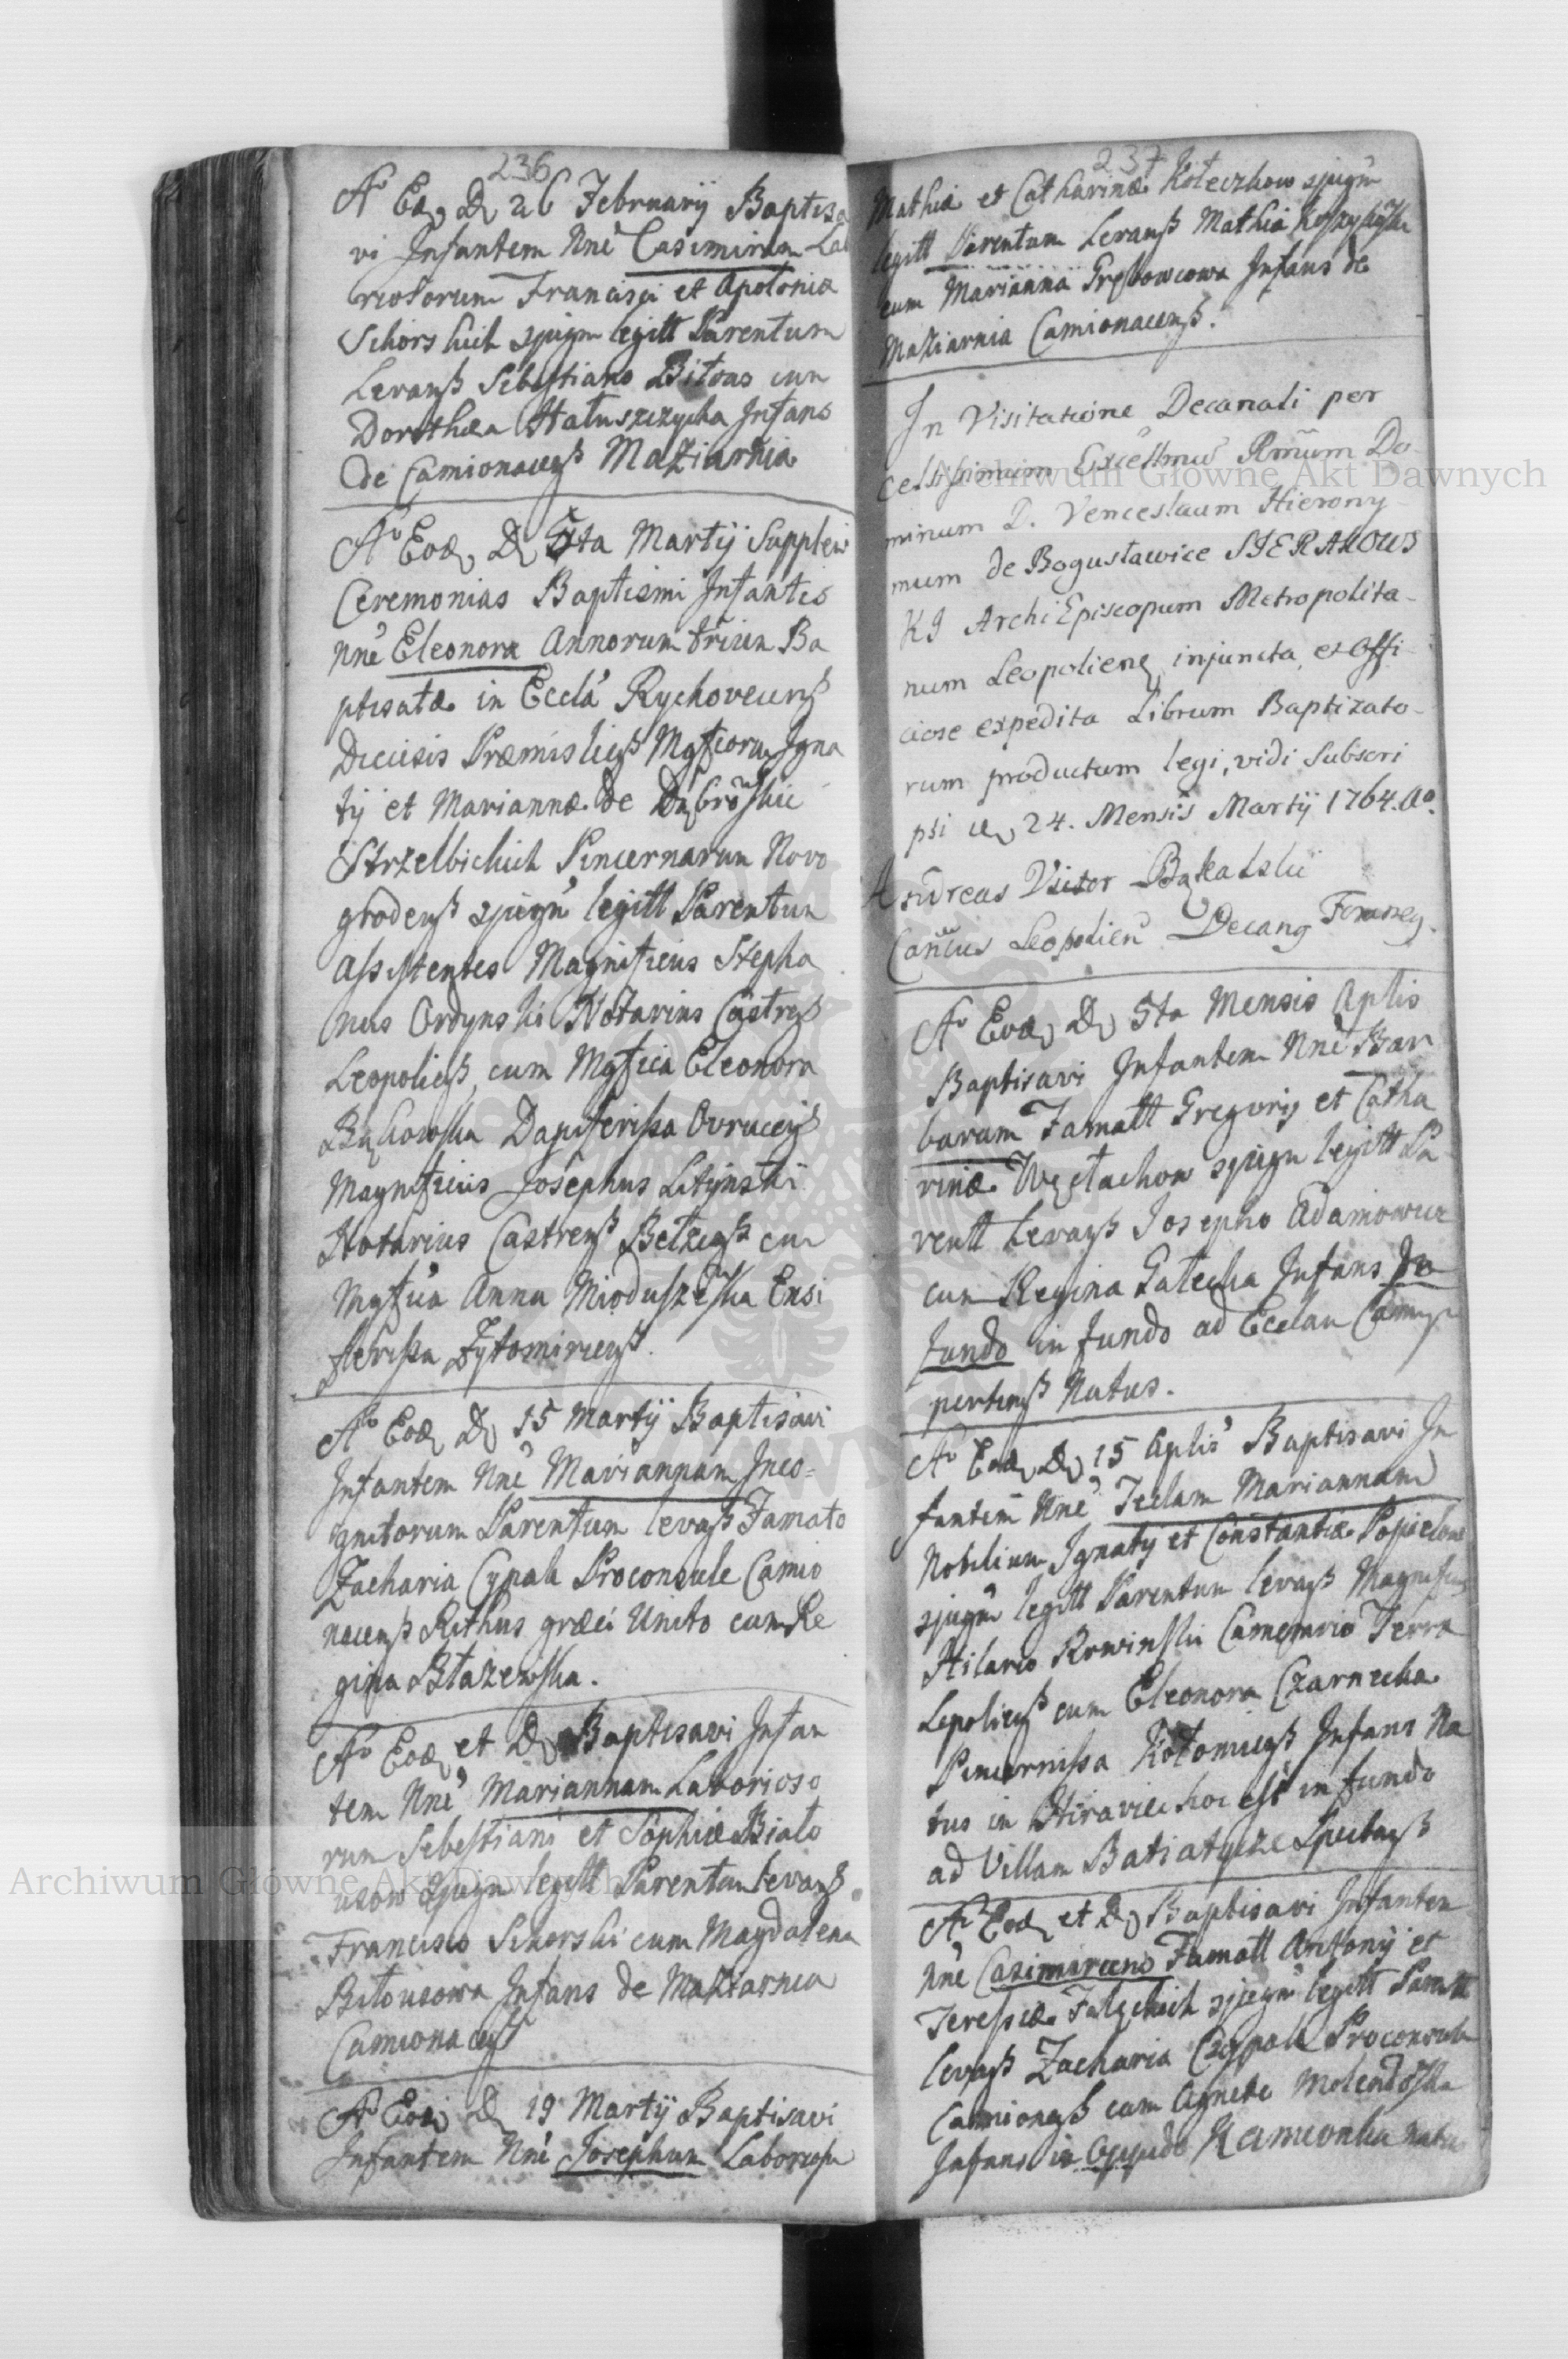 236
Ao Eo, D, 26 Februarij Baptisa
vi Infantem Nne Casimirum Lab
riosorum Francisci et Apolonia
Schorskich sjugm legitt Parentum
Levanß Sebastiano Bitous cum
Dorothea Hatuszczycka Infans
de Camionacenß Maziarnia
Ao Eod, D, 5ta Martij Supplevi
Ceremonias Baptismi Infantis
Nne Eleonora Annorum trium Ba
ptisatæ in Eccla Rychovcenß
Diecesis Præmislienß Mgficorum Igna
tij et Mariannæ de Dąbrowskie
Strzelbickich Pincernarum Novo
grodenß sjugm legitt Parentum
Assistentes Magnificus Stepha
nus Ordynski Notarius Castrenß
Leopolienß, cum Mgfica Eleonora
Bukowska Dapiferissa Ovrucenß
Magnificus Josephus Litynski
Notarius Castrenß Belzenß cum
Mgfica Anna Mioduszewska Ensi
ferissa Zytomirienß.
Ao Eod, D, 15 Martij Baptisavi
Infantem Nne Mariannam Inco=
gnitorum Parentum levanß Famato
Zacharia Cypak Proconsule Camio
nacenß Rithus græci Unito cum Re
gina Błazewska.
Ao Eod, et D, Baptisavi Infan
tem Nne Mariannam Laborioso
rum Sebastiani et Sophiæ Biało
usow sjugm legitt Parentum levanß
Francisco Schorski cum Magdalena
Bitousowa Infans de Maziarnia
Camionacenß
Ao Eod, D, 19 Martij Baptisavi
Infantem Nne Josephum Laborioso
237
Mathiæ et Catharinæ Koleczkow sjugm
legitt Parentum Levanß Mathia
cum Marianna Grębowcowa Infans de
Maziarnia Camionacenß.
In Visitatione Decanali per
Celsissimum Excellmũ Rmũm Do
minum D. Venceslaum Hierony
mum de Bogusławice SIERAKOWS
KI ArchiEpiscopum Metropolita
num Leopolien, injuncta, et offi
ciose expedita Librum Baptizato
rum productum legi, vidi Subscri
psi D, 24. Mensis Martij 1764. Ao.
Andreas Victor Bąkalski
Canĩcus Leopolien Decang Foraneg.
Ao Eod, D, 5ta Mensis Aplis
Baptisavi Infantem Nne Bar
baram Famatt Gregorij et Catha
rinæ sjugm legitt Pa
rentt Levanß Josepho Adamowicz
cum Regina Gałecka Infans de
fundo in fundo ad Ecclam
pertinenß Natus.
Ao Eod, D, 15 Aplis Baptisavi In
fantem Nne Teclam Mariannam
Nobilium Ignatij et Constantiæ Popielow
sjugm legitt Parentum levanß Magnifico
Hilario Camerario Terræ
Lepolienß cum Eleonora Czarnecka
Pincernissa Kołomienß Infans Na
tus in hoc est in fundo
ad Villam Batiatycze Spectanß
Ao Eod, et D, Baptisavi Infantem
Nne Casimirum Famatt Antonij et
Teressiæ sjugm legitt Parentt
levanß Zacharia Cypak Proconsule
Camionenß cum Agnete
Infans in Oppido Kamionka natus
Archiwum Główne Akt Dawnych
Archiwum Główne Akt Dawnych